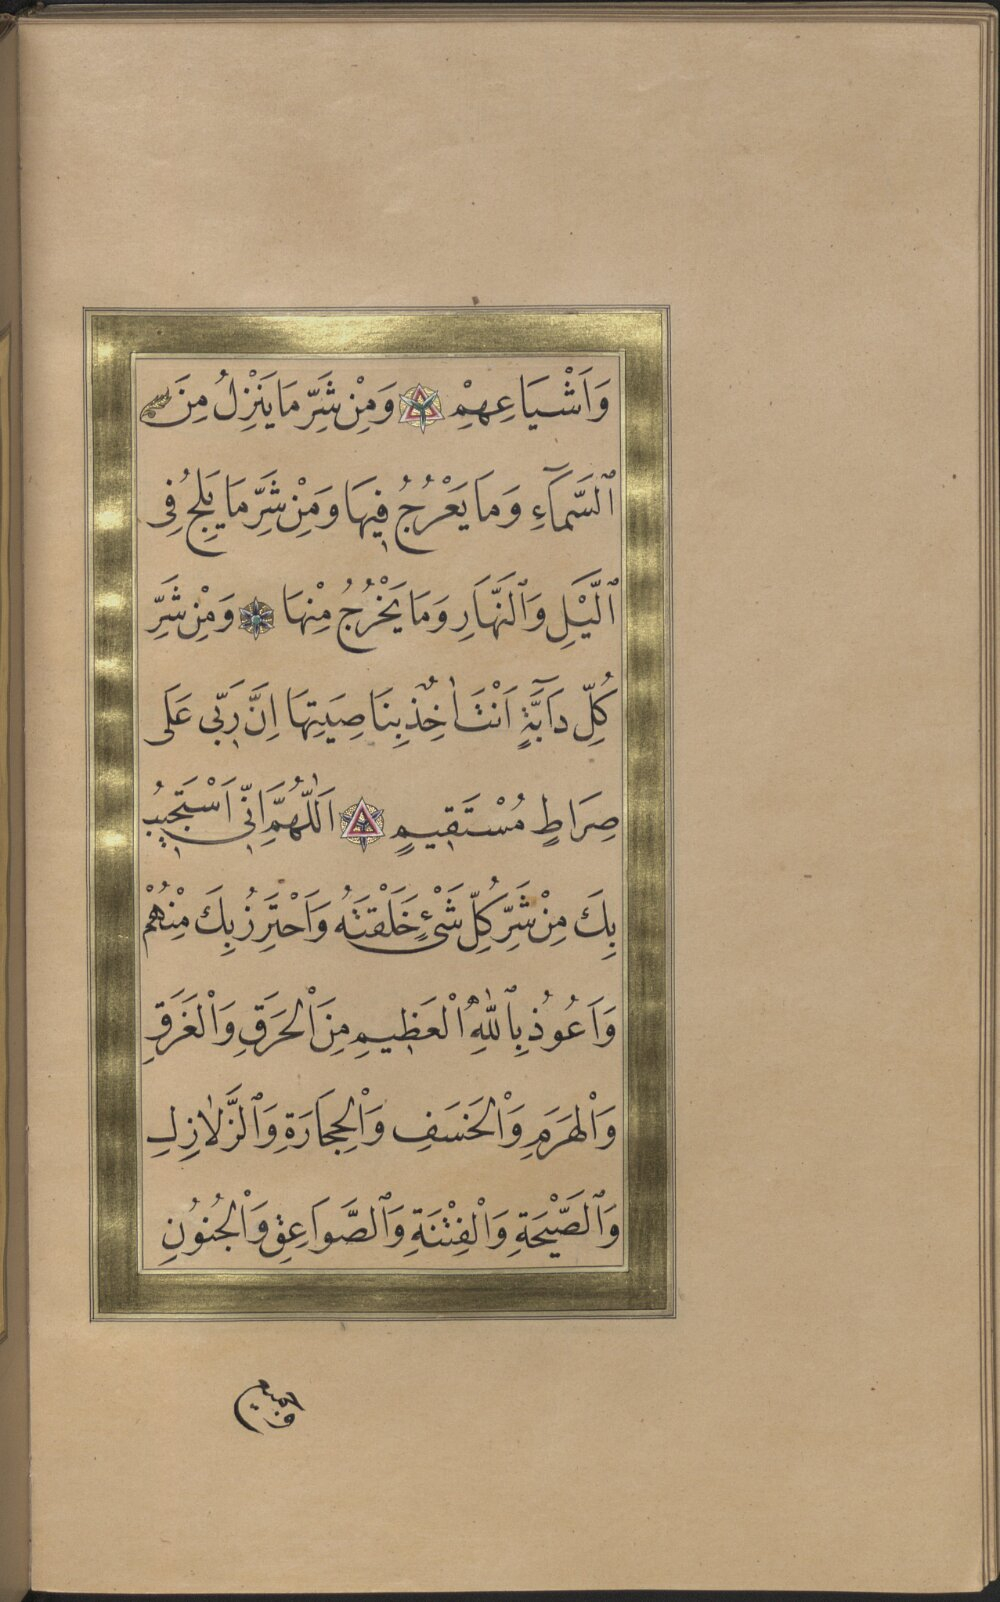 وَاَشْيَاعِهِمْ وَمِنْ شَرِّ مَا يَنْزِلُ مِنَ
ٱلسَّمَآءِ وَمَا يَعْرُجُ فِيهَا وَمِنْ شَرِّ مَا يَلِجُ فِى
ٱلَّيْلِ وَٱلنَّهَارِ وَمَا يَخْرُجُ مِنْهَا وَمِنْ شَرِّ
كُلِّ دَآبَّةٍ اَنْتَ اٰخِذٌ بِنَاصِيَتِهَا اِنَّ رَبِّى عَلَى
صِرَاطٍ مُسْتَقِيمٍ اَللّٰهُمَّ اِنِّى اَسْتَجِيبُ
بِكَ مِنْ شَرِّ كُلِّ شَئٍ خَلَقْتَهُ وَاَحْتَرِزُ بِكَ مِنْهُمْ
وَاَعُوذُ بِٱللّٰهِ ٱلْعَظِيمِ مِنَ ٱلْحَرَقِ وَٱلْغَرَقِ
وَٱلْهَرَمِ وَٱلْخَسَفِ وَٱلْحِجَارَةِ وَٱلزَّلَازِلِ
وَٱلصَّيْحَةِ وَٱلْفِتْنَةِ وَٱلصَّوَاعِقِ وَٱلْجُنُوْنِ
وجميع